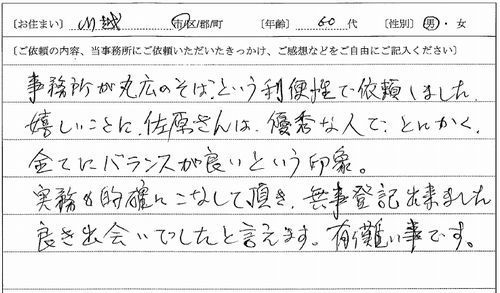 [お住まい] 川越 市/区/郡/町 [年齢] 60代 [性別] 男・女
[ご依頼の内容、当事務所にご依頼いただいたきっかけ、ご感想などをご自由にご記入ください]
事務所が丸広のそば、という利便性で依頼しました。
嬉しいことに、佐原さんは、優秀な人で、とにかく、
全てにバランスが良いという印象。
実務も的確にこなして頂き、無事登記出来ました
良き出会いでしたと言えます。有難い事です。